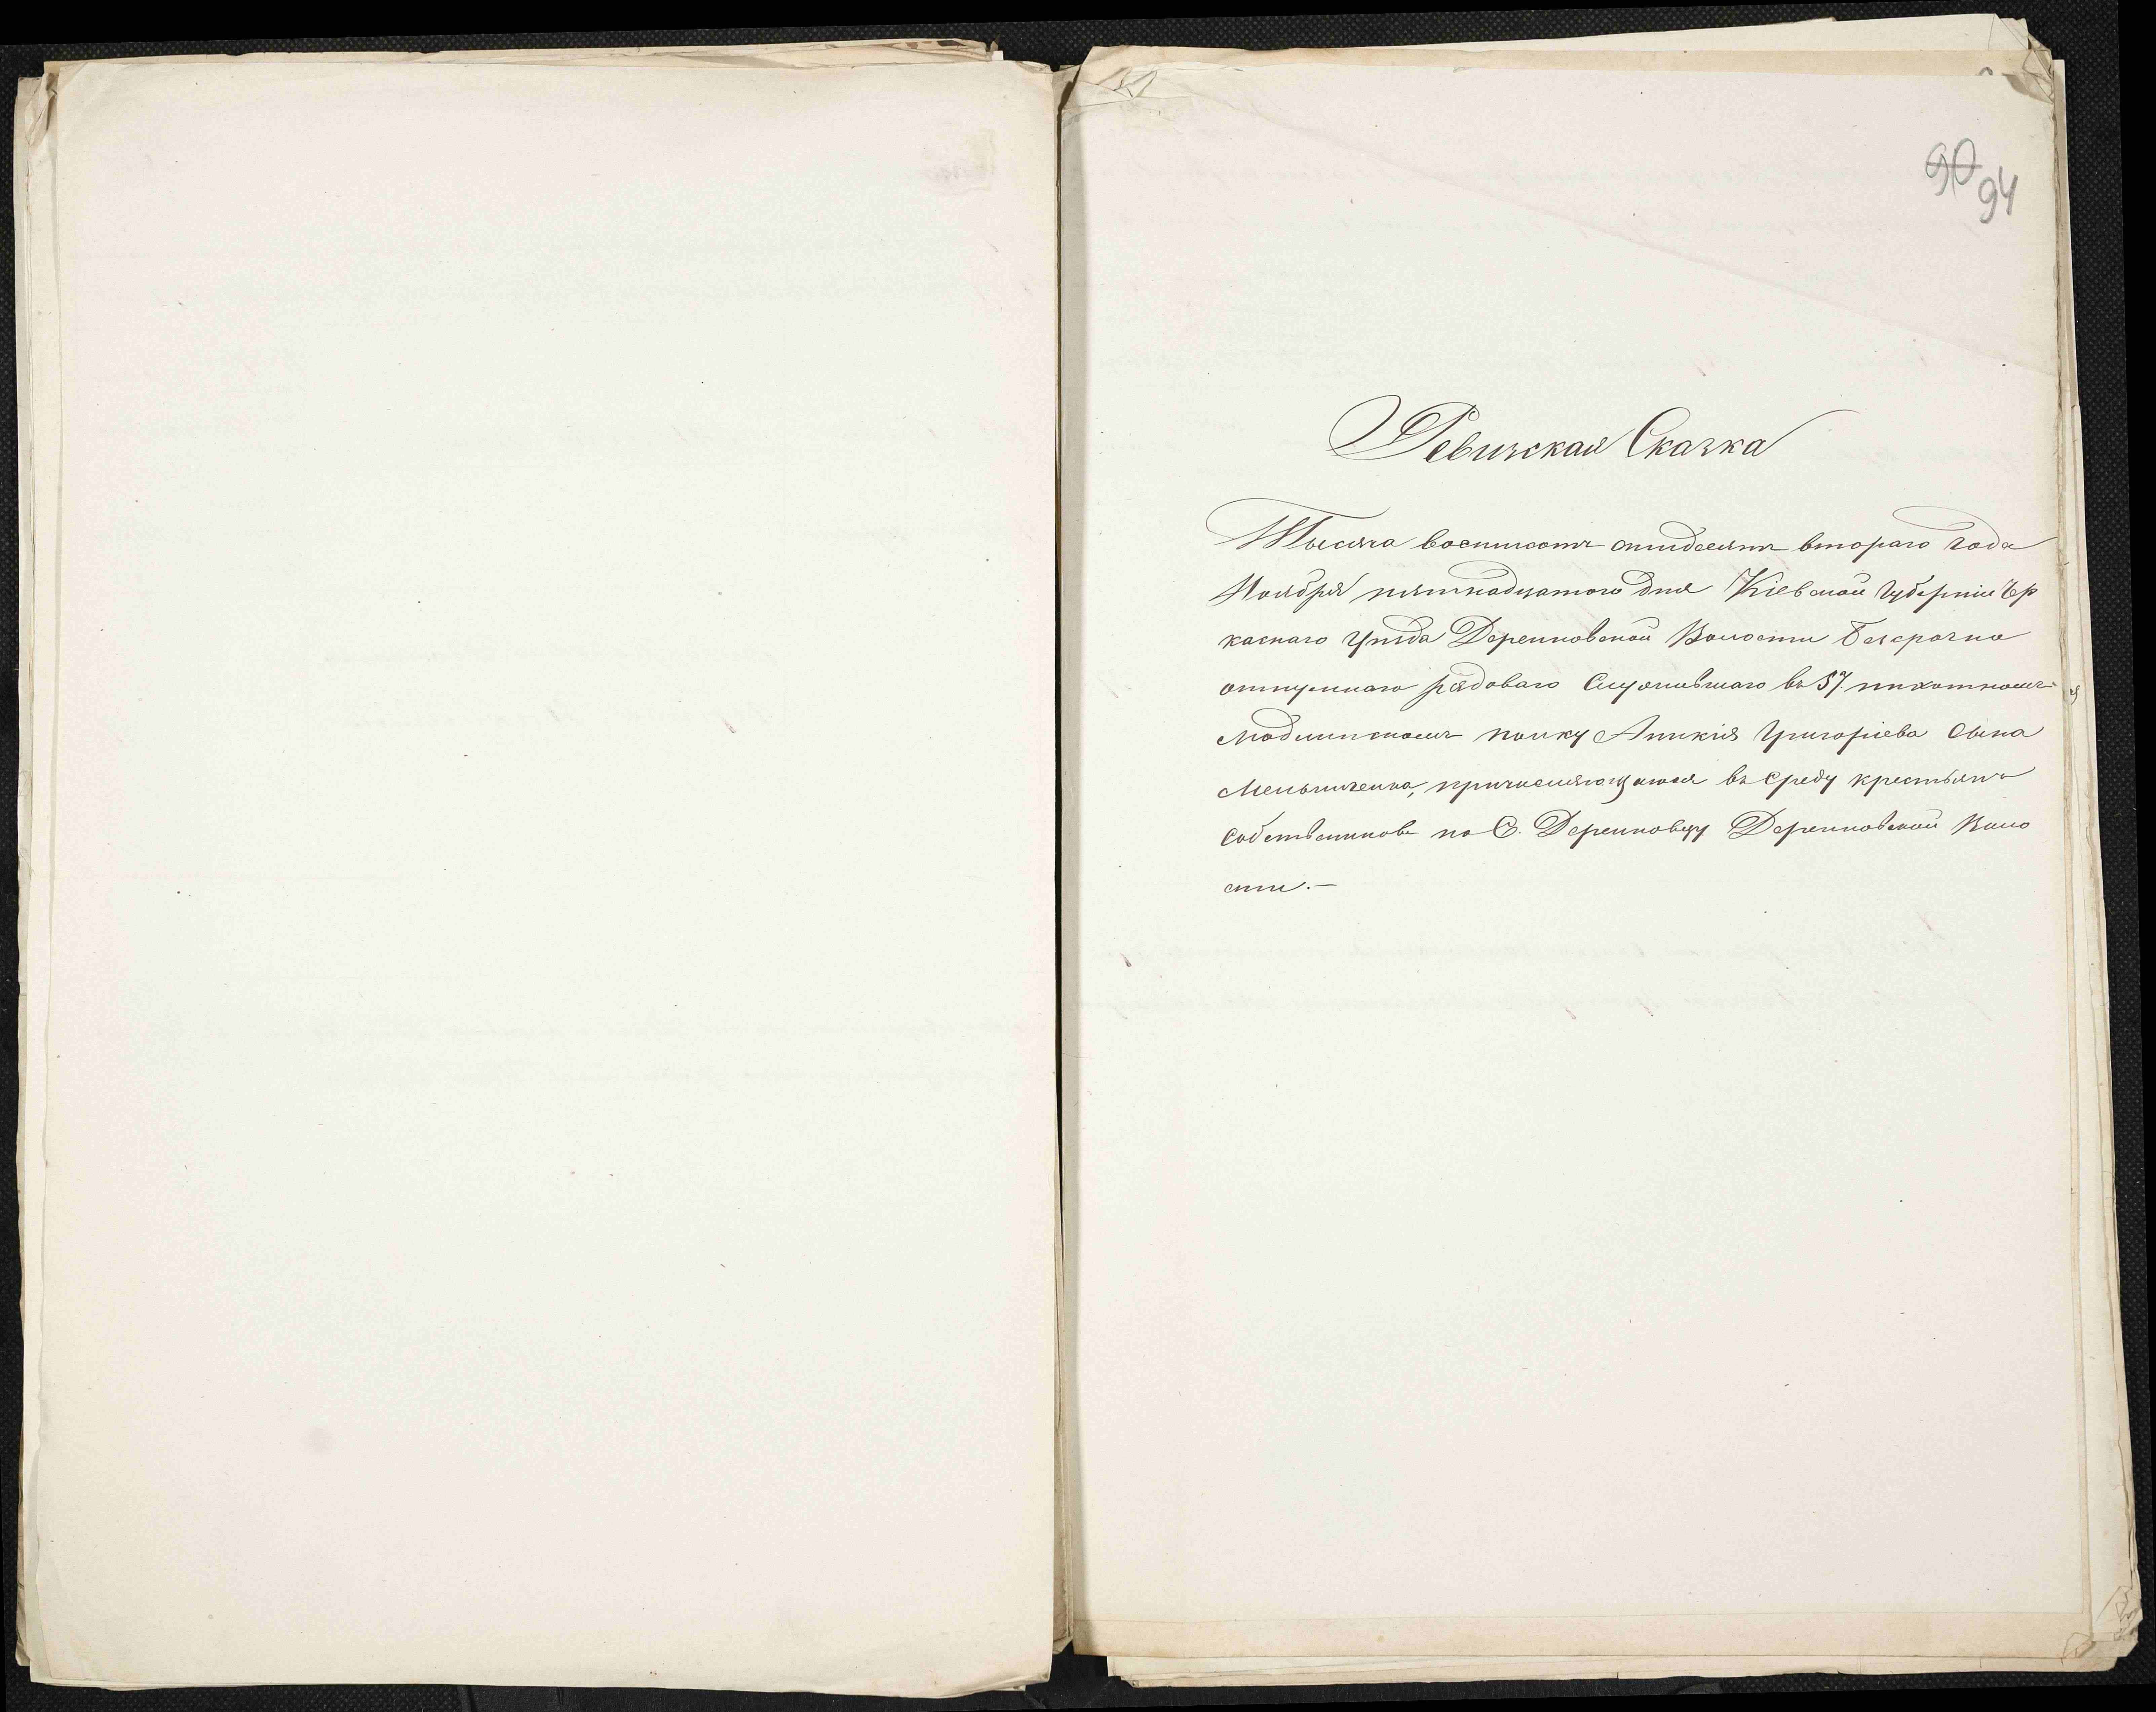 90 94
Ревизская Сказка
Тысяча восемьсотъ втораго года
Ноября пятнадцатого дня Кіевской Губерніи Чер
каскаго Уѣзда Деренковской Волости безсрочно
отпускнаго рядоваго Служившаго въ 57. пѣхотномъ
Модлинскомъ полку Аникія Григоріева сына
Мельниченка, причисляющагося въ среду крестьянъ
собственниковъ по С. Деренковцу Деренковской Воло
сти.—